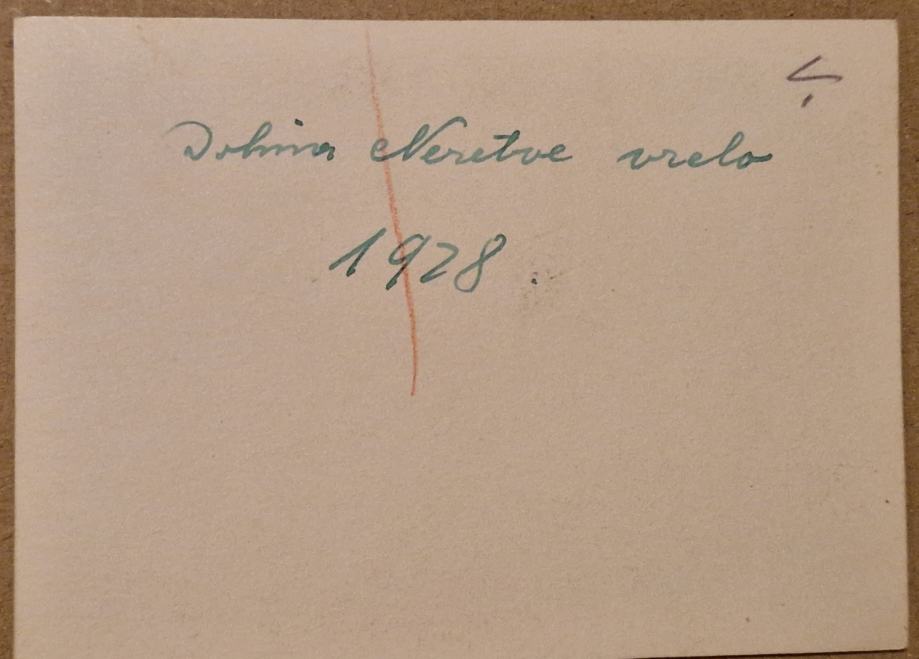 Dolina Neretve vrelo
1928.